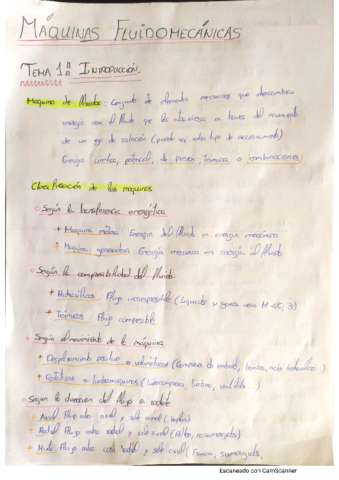 MÁQUINAS FLUIDOMECÁNICAS
TEMA 1: INTRODUCCIÓN.
Máquina de fluidos: Conjunto de elementos mecánicos que intercambia
energía con el fluido que la atraviesa a través del movimiento
de un eje de rotación (puede ser otro tipo de accionamiento)
Energía cinética, potencial, de presión, térmica o combinaciones
Clasificación de las máquinas
Según la transferencia energética
+ Máquina motora: Energía del fluido en energía mecánica
+ Máquina generadora: Energía mecánica en energía del fluido
Según la compresibilidad del fluido
+ Hidráulicas: Flujo incompresible (Líquidos y gases con M < 0,3)
+ Térmicas: Flujo compresible
Según el movimiento de la máquina
+ Desplazamiento positivo o volumétricas (, bomba, )
+ Rotativas o turbomáquinas (turbocompresor, turbina, ventilador)
Según la dirección del flujo
+ Axial: Flujo entra axial y sale axial (Kaplan)
+ Radial: Flujo entra radial y sale axial (
+ Mixto: Flujo entra radial y sale axial (Francis,
Escaneado con CamScanner